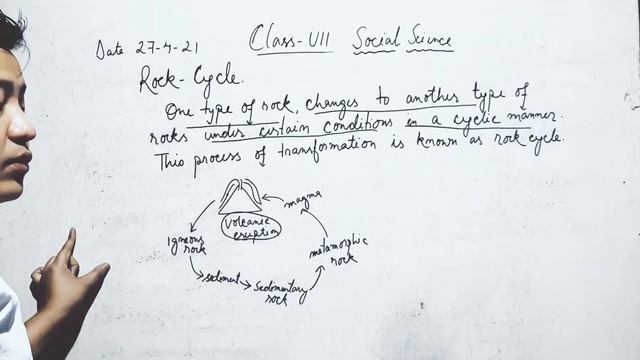 Date 27-4-21
Class-VII Social Science
Rock-Cycle.
One type of rock, changes to another type of
rocks under certain conditions in a cyclic manner.
This process of transformation is known as rock cycle.
magma
Volcanic
eruption
Igneous
rock
metamorphic
rock
sediment
Sedimentary
rock